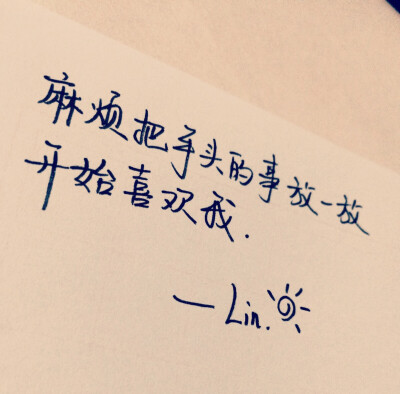 麻烦把手头的事放一放
开始喜欢我.
—Lin.